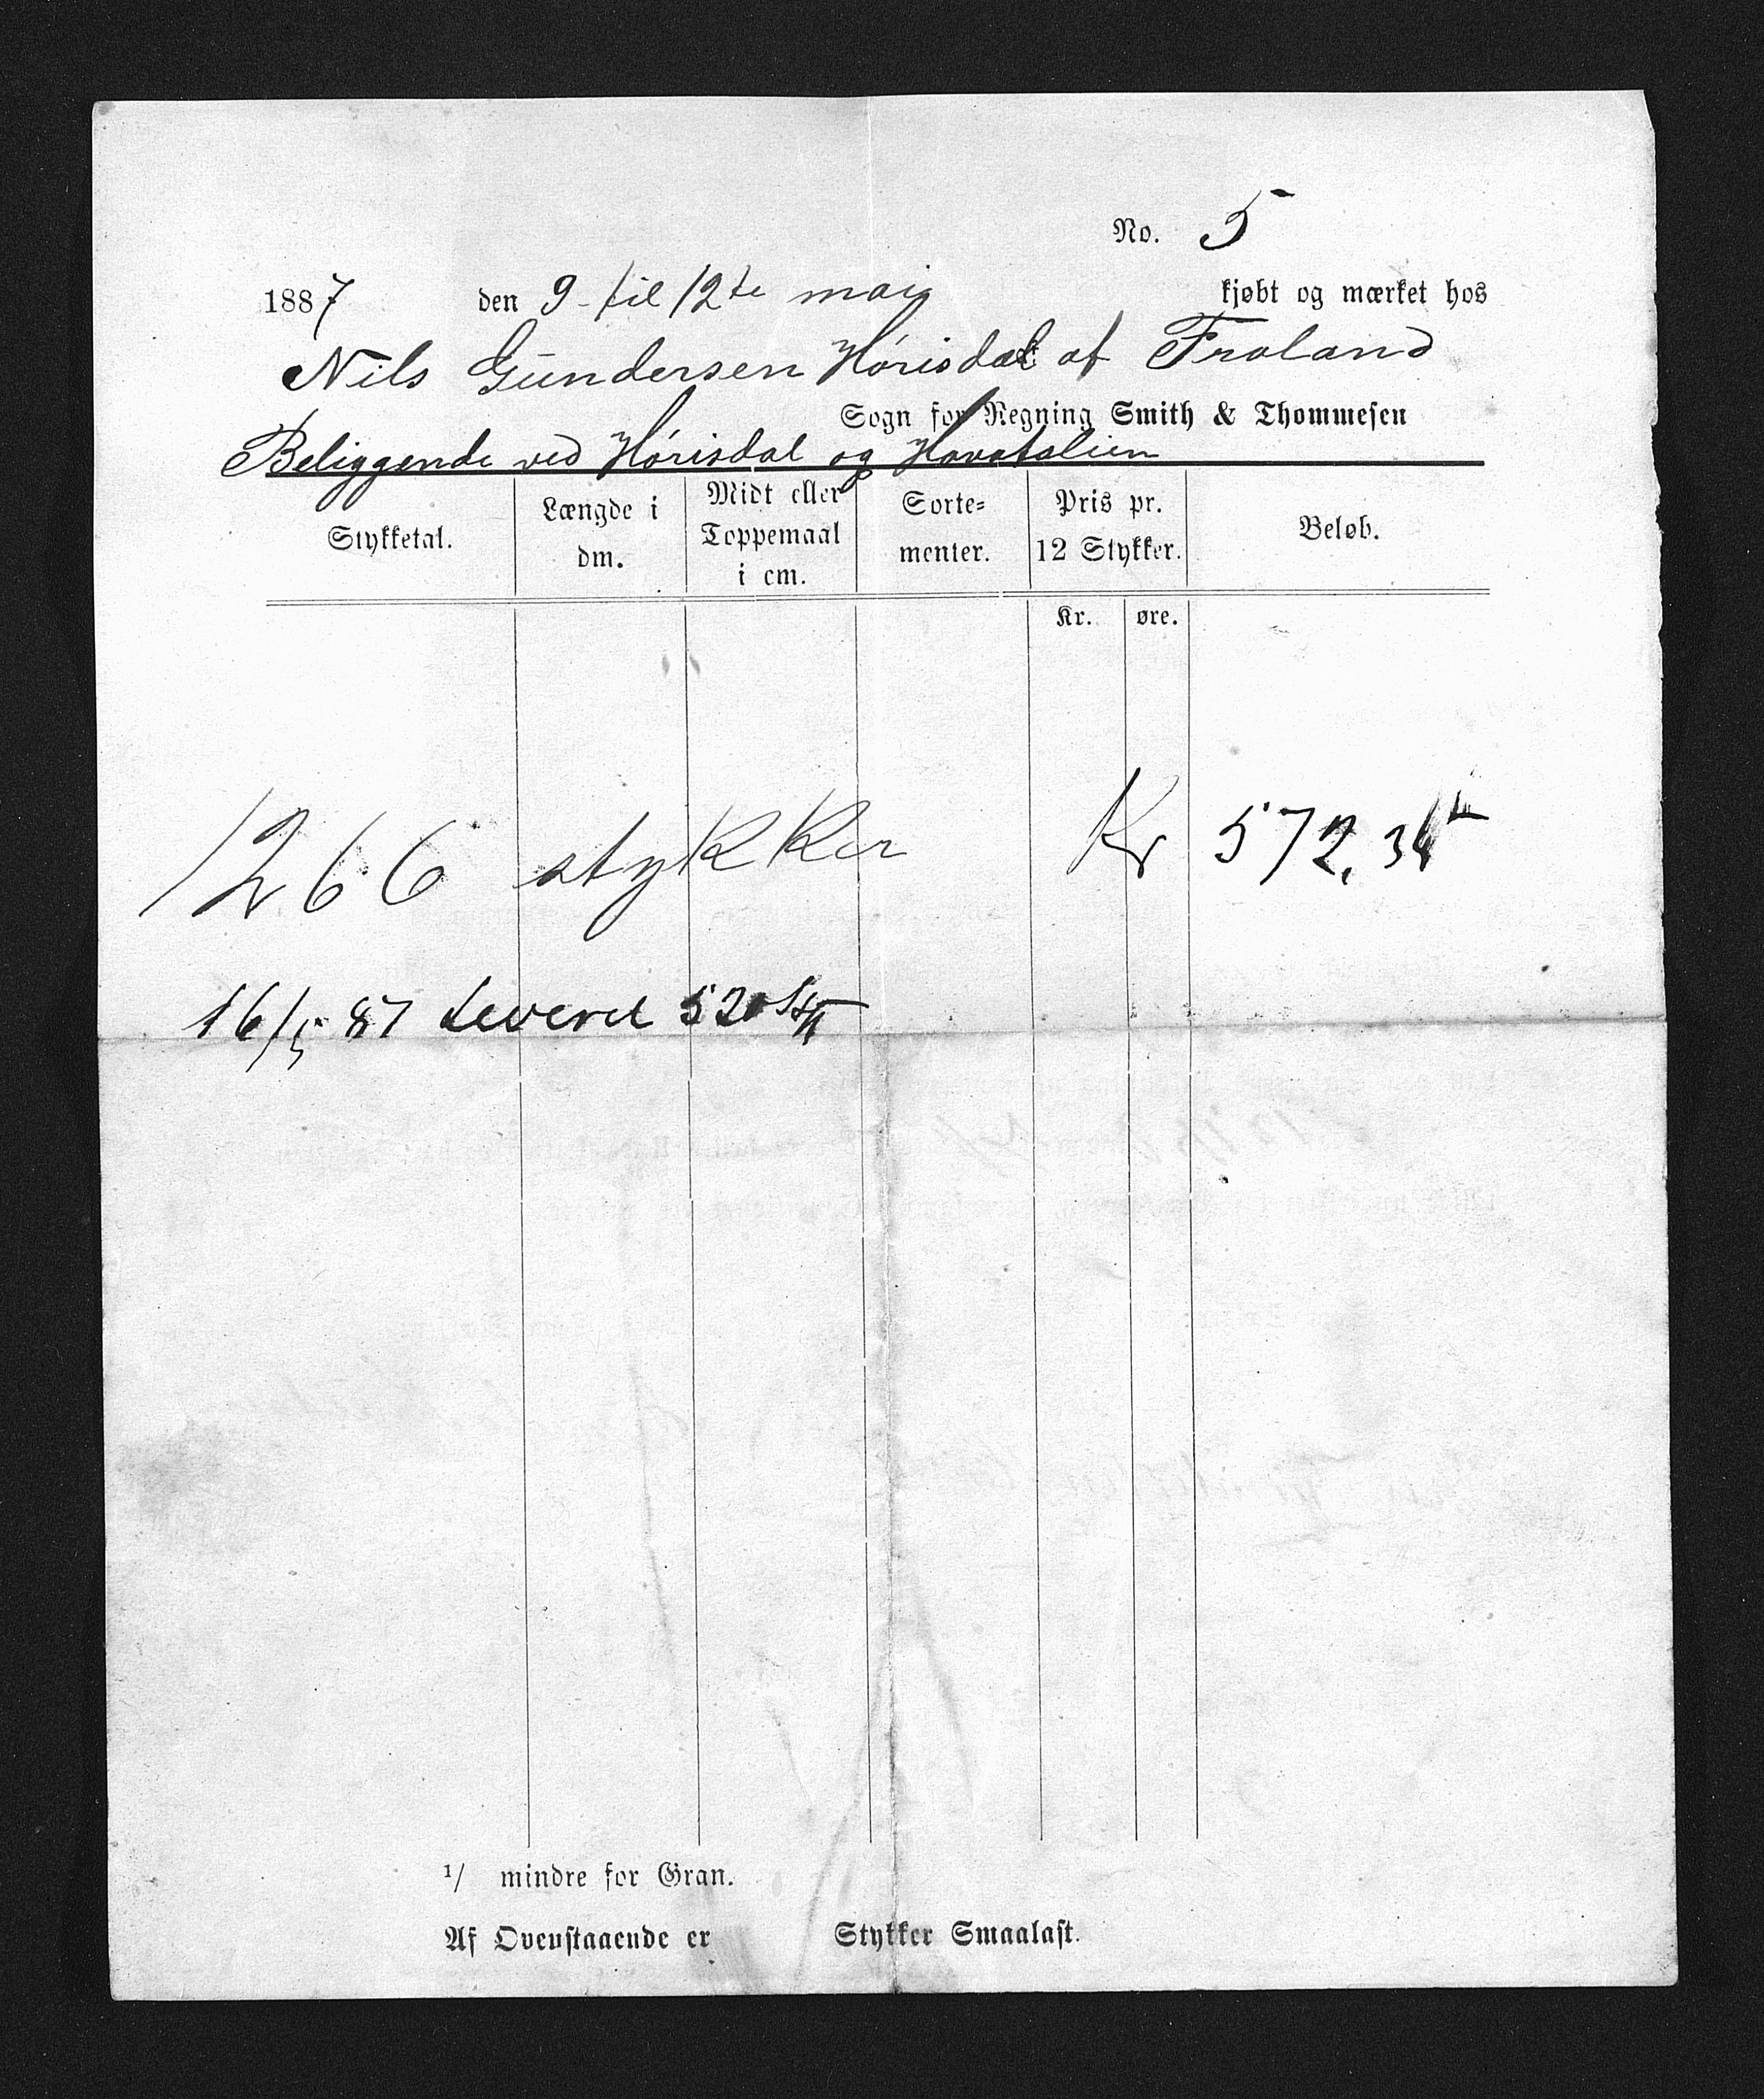 No. 5
1887 den 9 - til 12te mai kjøbt og mærket hos
Nils Gundersen Hørisdal af Froland
Sogn for Regning Smith & Thommesen
Beliggende ved Hørisdal og
Stykketal. Længde i dm. Midt eller Toppemaal i cm. Sorte-menter. Pris pr. 12 Stykker. Beløb.
Kr. øre.
1266 stykker Kr 572,
16/5 87 Leveret 520
1/ mindre for Gran.
Af Ovenstaaende er Stykker Smaalast.